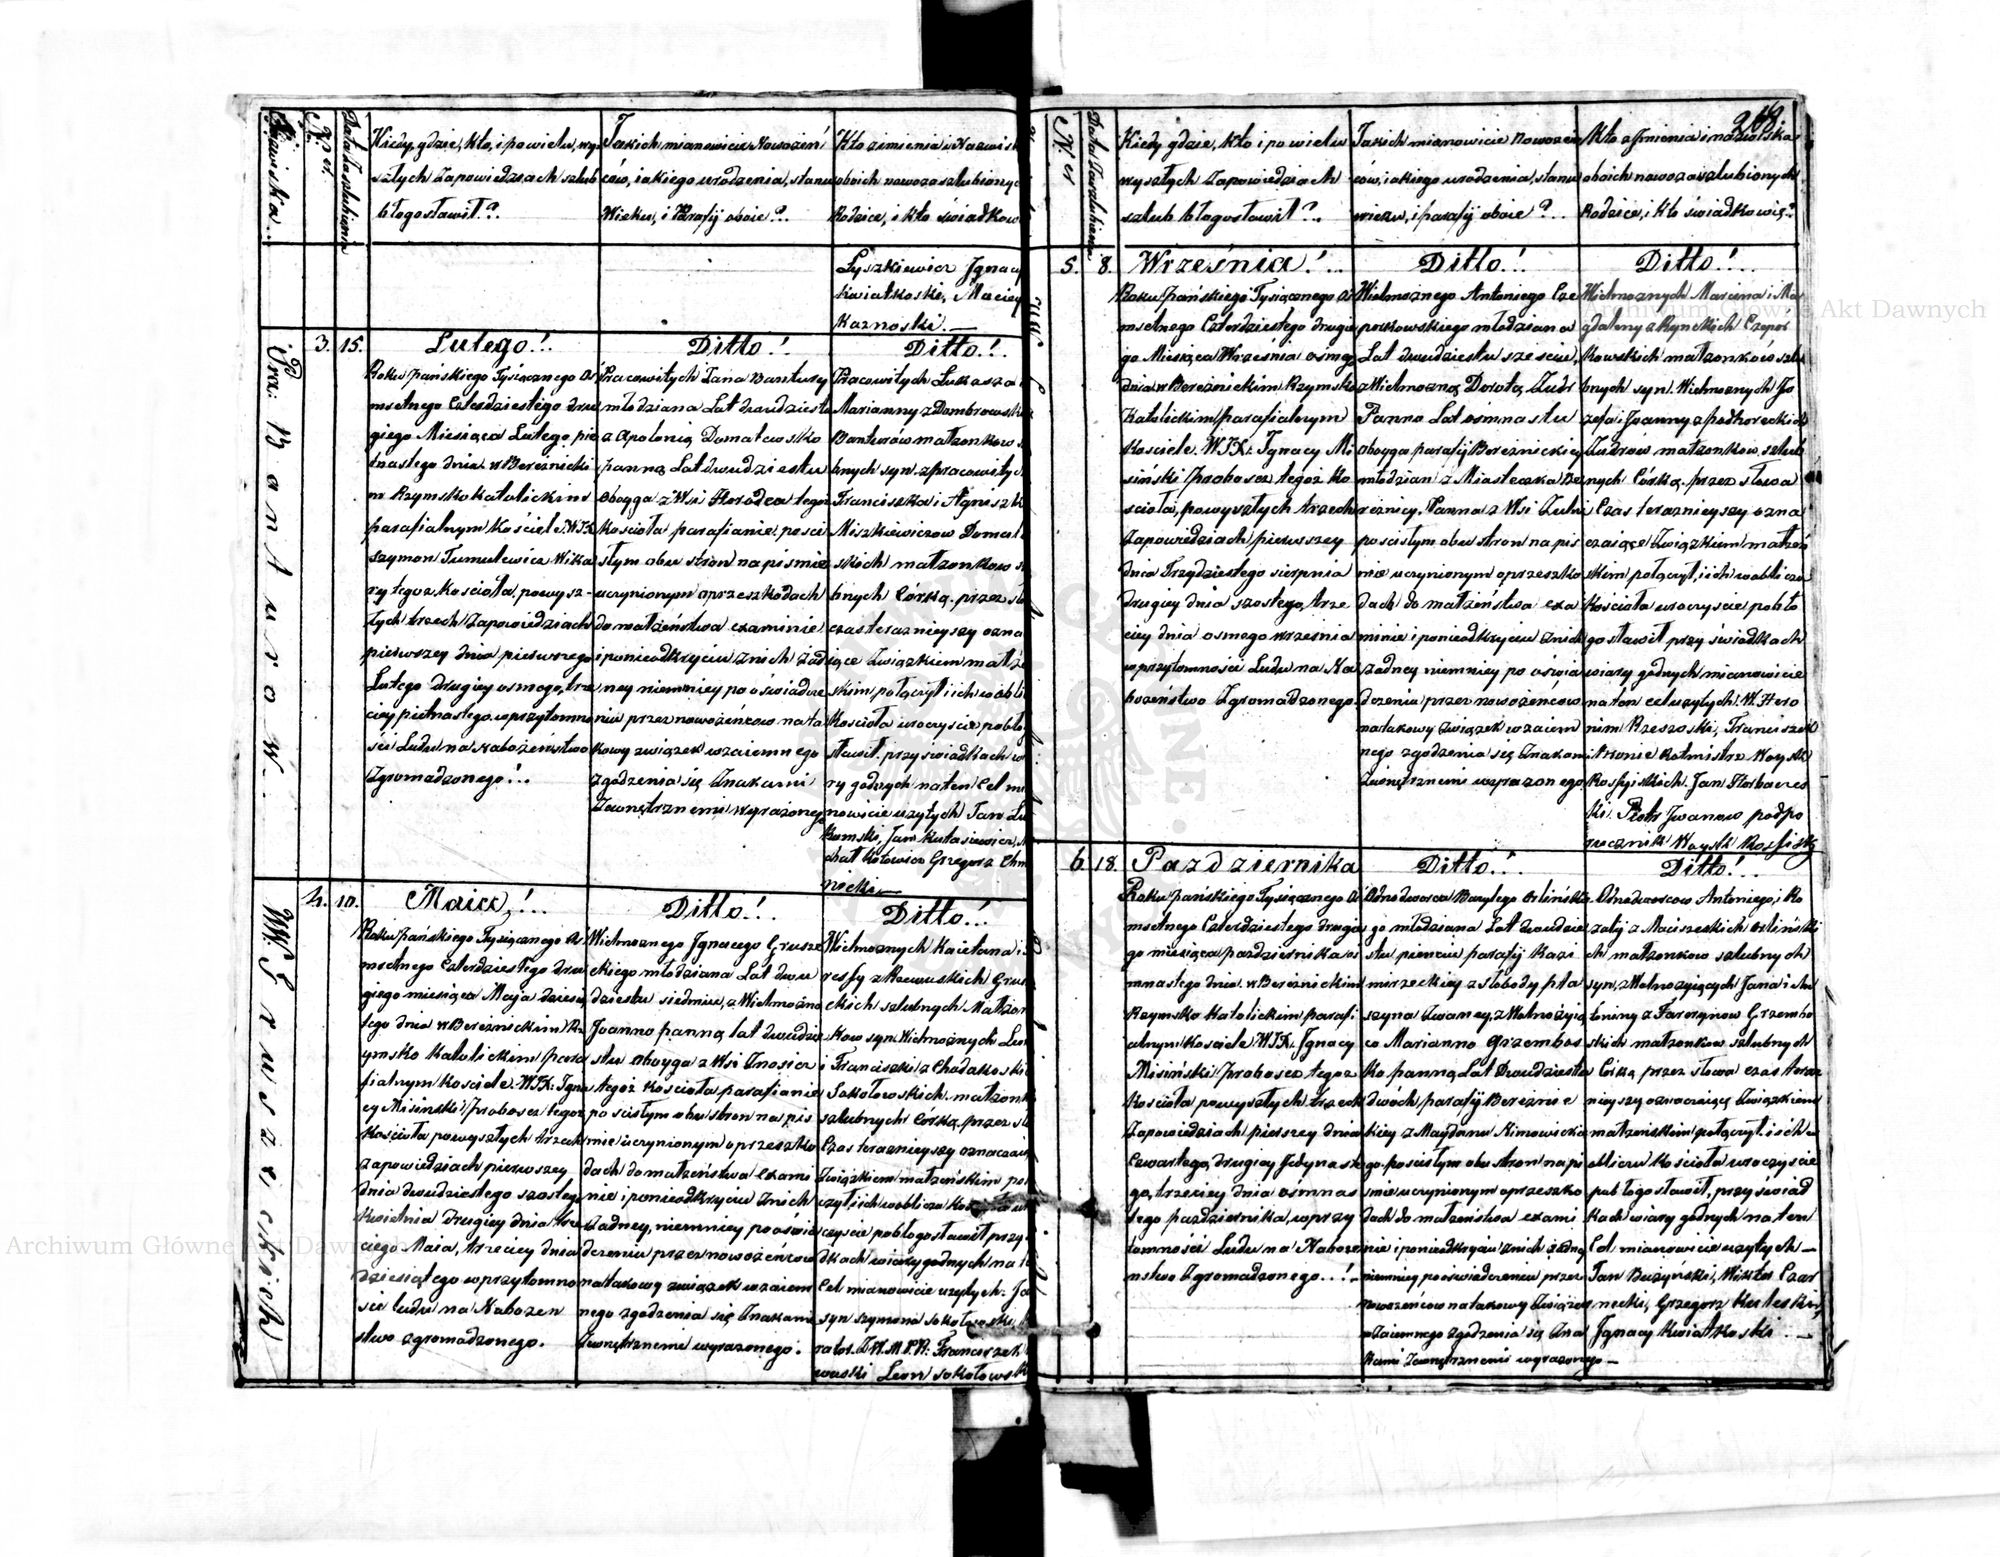 Nazwiska.
N. er.
Data Zaszlubienia
Kiedy, gdzie, kto, i po wielu, wy
szłych Zapowiedziach szlub
błogosławił?.
Jakich mianowicie Nowożeń
ców, iakiego urodzenia, stanu
Wieku, i Parafij oboie?.
Kto z imienia i Nazwisk
oboich nowozaszlubionych
Rodzice, i kto świadkow
Łyszkiewicz Ignacy
Kwiatkoski, Maciey
Karnoski. —
Pra: Banturow.
3. 15.
Lutego!..
Roku Pańskiego Tysiącznego Oś
msetnego Czterdziestego dru
giego Miesiąca Lutego, pię
tnastego dnia. w Bereznicki
m Rzymsko katolickim
parafialnym Kościele. W.J.X.
Szymon Tumulewicz Wika
ry tegoż Kościoła, powysz-
łych trzech Zapowiedziach
pierwszey dnia pierwszego
Lutego drugiey osmego, trze
ciey pietnastego. w przytomno
ści Ludu na nabożeństwo
Zgromadzonego!..
Ditto!.
Pracowitych Jana Bantury
młodziana Lat dwudziestu
z Apolonią Domalewsko
panną Lat dwudziestu
oboyga z Wsi Horodca tegoż
Kościoła parafianie. po sci
słym obu stron na pismie
uczynionym o przeszkodach
do małżeństwa examinie
i ponieodkryciu Znich żad
ney niemniey po oświadcze
niu przez nowożeńcow na ta
kowy związek wzaiemnego
zgodzenia się Znakami
Zewnętrznemi wyrażonego
Ditto!.
Pracowitych Łukasza
Marianny z Dombrowsk
Banturów małżonkow s
bnych syn. z pracowityc
Franciszka i Agnieszk
Miszkiewiczow Domal
skich małżonkow s
bnych Córką. przez sło
czas terazniejszy ozna
iące Związkiem małże
skim, połączył i ich w obli
Kościoła uroczyscie pobło
sławił. przy świadkach w
ry godnych na ten Cel mi
nowicie użytych Jan Łu
komski, Jan Kutasiewicz,
chał Kołowicz Grzegorz Chm
nicki —
WW. Gruszeckich
4. 10.
Maia,!..
Roku Pańskiego Tysiącznego Oś
msetnego Czterdziestego dru
giego miesiąca Maja dziesią
tego dnia w Bereznickim Rz
ymsko Katolickim para
fialnym kościele. W.J.X: Igna
cy Misiński Proboscz tegoż
Kościoła powyszłych trzech
zapowiedziach pierwszey
dnia dwudziestego szostego
kwietnia drugiey dnia trze
ciego Maia, trzeciey dnia
dziesiątego w przytomno
ści ludu na Nabożen
stwo zgromadzonego.
Ditto!.
Wielmożnego Ignacego Grusze
ckiego młodziana Lat dwu
dziestu siedmiu, z Wielmożną
Joanno panną lat dwudzie
stu oboyga z Wsi Znosicz
tegoż Kościoła parafianie
po scisłym obu stron na pis
mie uczynionym o przeszko
dach do małżeństwa Exami
nie i ponieodkryciu Znich
Żadney, niemniey po oświa
dczeniu przez nowożeńcow
na takowy związek wzaiem
nego zgodzenia się Znakami
Zewnętrznemi wyrażonego.
Ditto!.
Wielmożnych Kaietana i
ressy z Rzewuskich Grus
ckich szlubnych Małżon
kow syn. Wielmożnych Leo
i Franciszki z Chodakoski
Sokołowskich. małżonk
szlubnych Córką. przez sł
Czas terazniejszy oznaczai
Związkiem małżeńskim, po
czył i ich w obliczu Ko
czyscie pobłogosławił przy
dkach wiary godnych na t
Cel mianowicie użytych: Jo
syn Szymona Sokołowski,
Franciszek
Leon Sokołowsk
N. er
Data Zaszlubienia
Kiedy gdzie, kto i po wielu
wyszłych Zapowiedziach
szlub błogosławił?.
Jakich mianowicie Nowożeń
ców, iakiego urodzenia, stanu
wieku, i parafij oboie?.
Kto z Imienia i nazwiska
oboich nowozaszlubionych
Rodzice, i kto świadkowie?
5. 8.
Września!..
Roku Pańskiego Tysiącznego Oś
msetnego Czterdziestego drugie
go Miesiąca Września osmego
dnia w Bereznickim Rzymsko
Katolickim parafialnym
Kosciele. W.J.X: Ignacy Mi
siński Proboscz tegoż Ko
ścioła, powyszłych trzech
Zapowiedziach pierwszey
dnia Trzydziestego sierpnia
drugiey dnia szostego, trze
ciey dnia osmego września
w przytomności Ludu na Na
bożeństwo Zgromadzonego.
Ditto!..
Wielmożnego Antoniego Cze
porkowskiego młodziana
Lat dwudziestu sześciu,
z Wielmożną Dorotą Zudr
Panno Lat osmnastu
oboyga parafij Bereznickiey
młodzian z Miasteczka Be
reznicy. Panna z Wsi Zulni
po scisłym obu stron na pis
mie uczynionym o przeszko
dach do małżeństwa exa
minie i ponieodkryciu Znich
żadney niemniey po oświa
dczeniu przez nowożeńcow
na takowy Związek wzaiem
nego zgodzenia się Znakami
Zewnętrznemi wyrażonego
Ditto!..
Wielmożnych Marcina i Ma
gdaleny z Rynskich Czepor
kowskich małżonków szlu
bnych syn. Wielmożnych Jo
zefa i Joanny z Podhoreckich
Zudrów małżonkow, szlub
nych Córką. przez słowa
Czas terazniejszy ozna
czaiące Związkiem małżeń
skim połączył, i ich w obliczu
Kościoła uroczyscie pobło
gosławił przy świadkach
wiary godnych mianowicie
na ten cel użytych: W. Hero
nim Rzeszoski, Franciszek
Rotmistrz Woysk
Rossyiskich. Jan Horbaczes
ki. Piotr Iwanow podpo
rucznik Woysk Rossiisk
6. 18.
Pazdziernika
Roku Pańskiego Tysiącznego Oś
msetnego Czterdziestego Drugie
go miesiąca pazdziernika os
mnastego dnia. w Bereznickim
Rzymsko Katolickim parafi
alnym Kościele W.J.X. Ignacy
Misiński Proboscz tegoż
Kościoła powyszłych trzech
Zapowiedziach pierszey dnia
Czwartego, drugiey Jedynaste
go, trzeciey dnia ośmnas
tego pazdziernika, w przy
tomności Ludu na Naboże
nstwo Zgromadzonego..!
Ditto!..
Odnodworca Bazylego Orlińskie
go młodziana Lat dwudzie
stu pienciu parafij Kazi
mirzeckiey z Słobody pta
szyna Zwaney, z Wolnożyią
co Marianno Grzembos
ko panną Lat Dwudziestu
dwóch parafij Berezni
ckiey z Maydanu Kimowicka
go. po scisłym obu stron na pi
smie uczynionym o przeszko
dach do małżeństwa exami
nie i ponieodkryciu Znich żadny
niemniey po oświadczeniu przez
nowożeńcow na takowy Związek
wzaiemnego zgodzenia się Zna
kami Zewnętrznemi wyrażonego —
Ditto!..
Odnodworcow Antoniego, i Ro
zalij z Maiszeskich Orlińskich
ch małżonkow szlubnych
syn, z Wolnożyiących Jana i An
toniny z Farorynow Grzembo
skich małżonkow szlubnych
Córką przez słowa czas teraz
nieyszy oznaczaiące Związkiem
małżeńskim połączył. i ich w
obliczu Kościoła uroczyscie
pobłogosławił, przy świad
kach wiary godnych na ten
Cel mianowicie użytych —
Jan Buzyński, Wiktor Czar
necki, Grzegorz Kuleski,
Ignacy Kwiatkoski. —
Archiwum Główne Akt Dawnych
Archiwum Główne Akt Dawnych